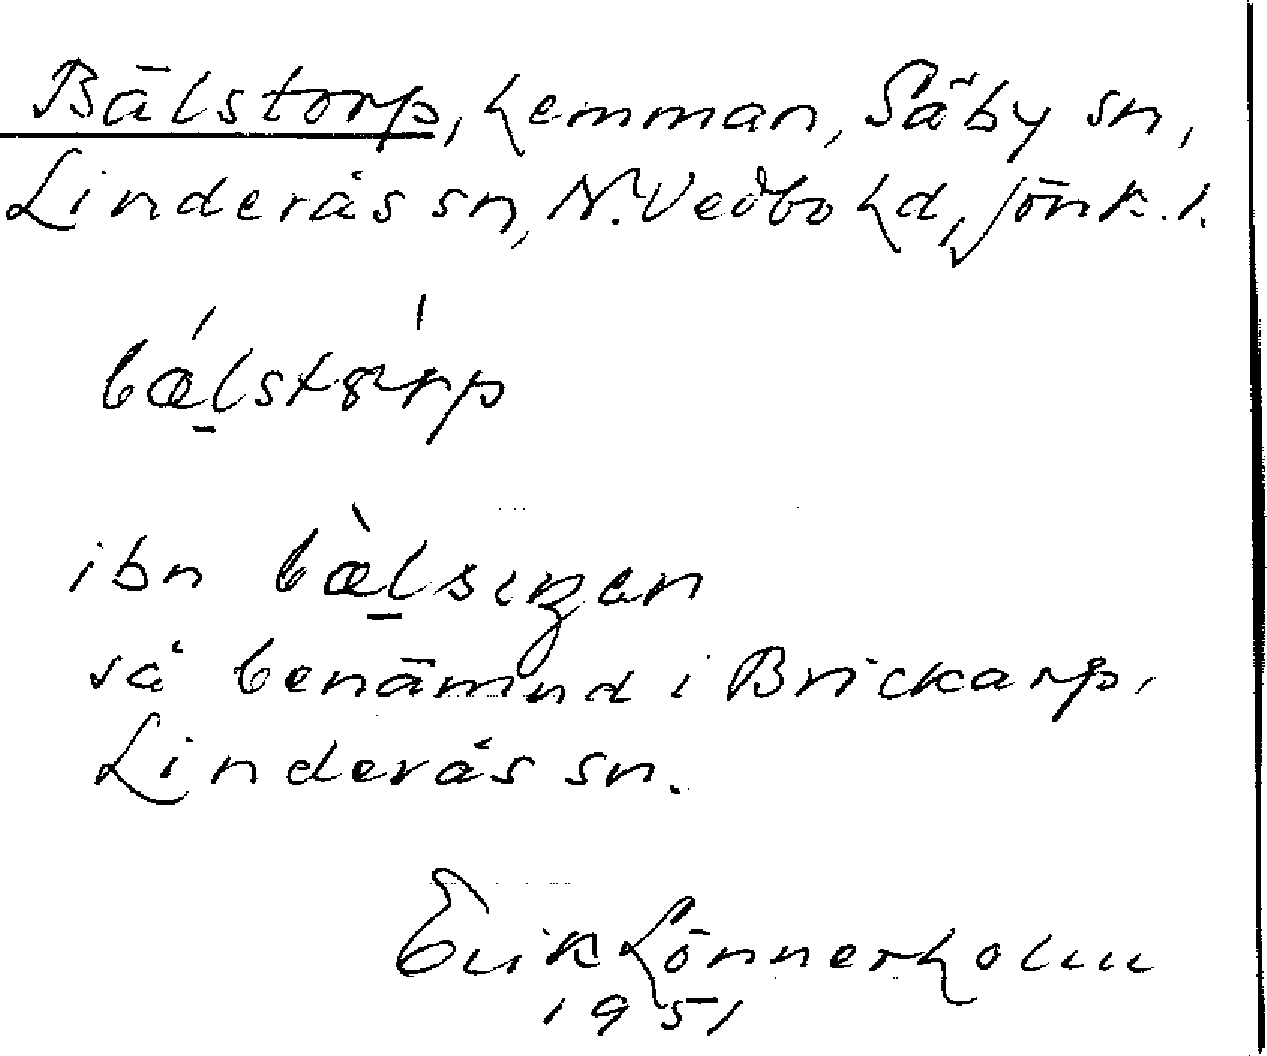 Bälstorp, hemman, Säby sn,
Linderås sn, N. Vedbo hd, Jönk. l.
bǽ̱lstórp
ibn bæ̱̀lsıŋen
så benämnd i Brickarp,
Linderås sn.
Erik Lönnerholm
1951